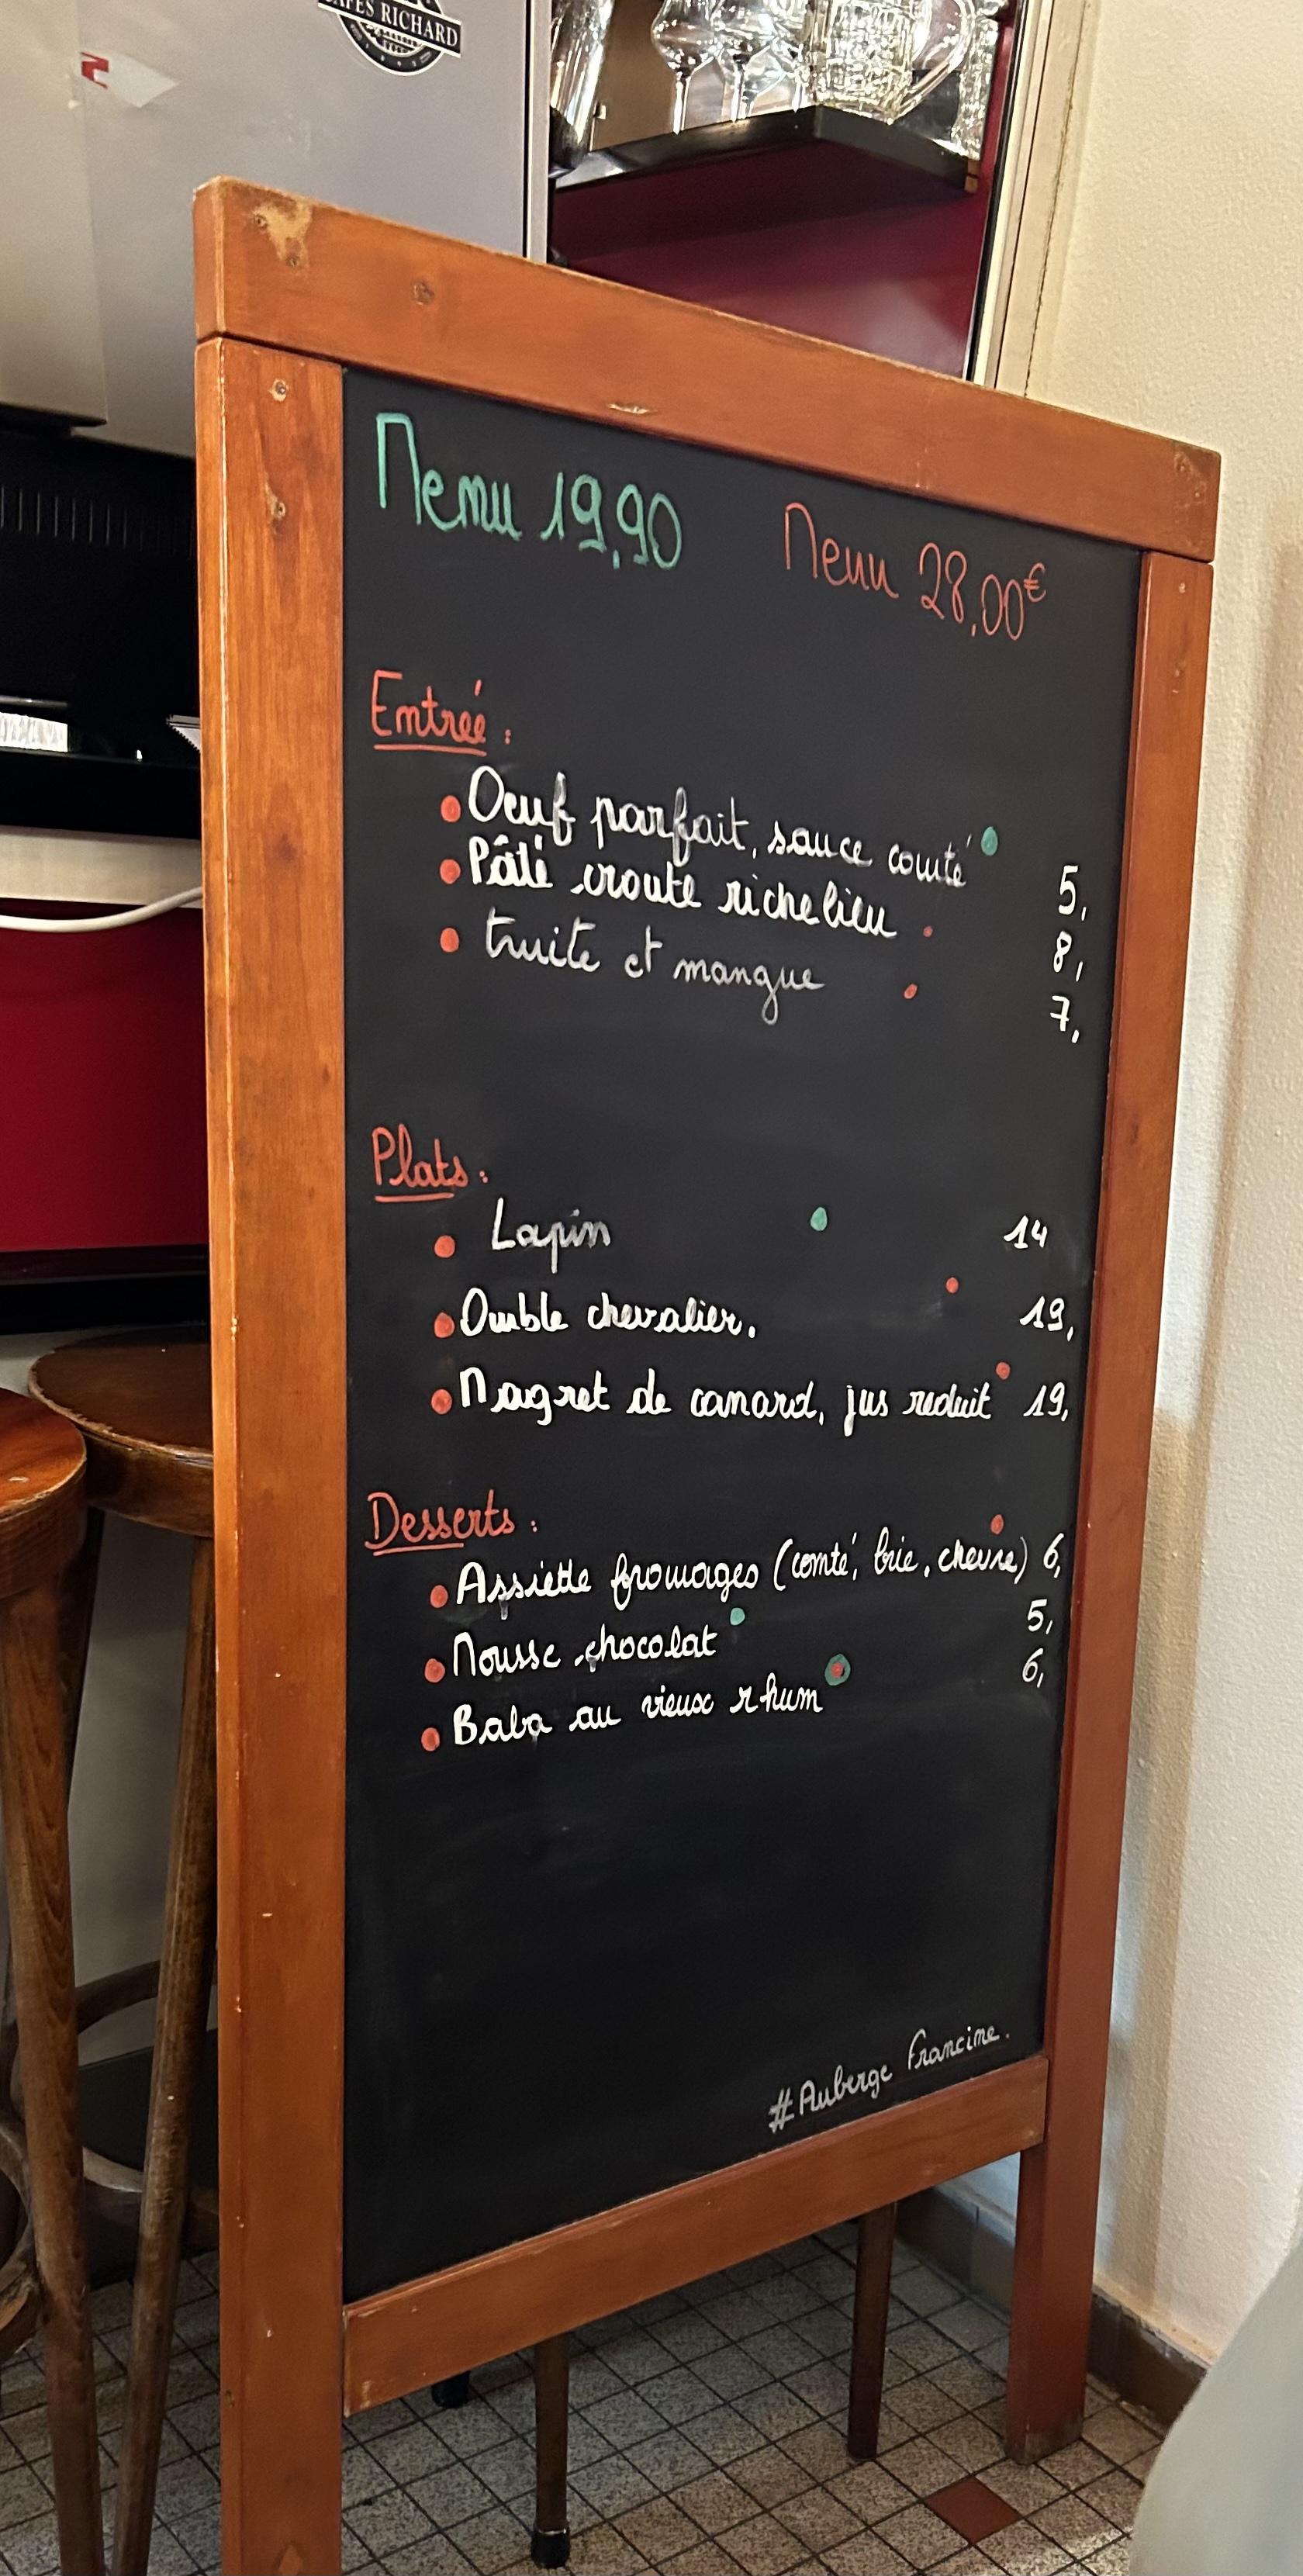 CAFÉS RICHARD
Menu 19,90
Menu 28,00€
Entreé :
Oeuf parfait, sauce comté 5,
Pâté croute richelieu 8,
truite et mangue 7,
Plats :
Lapin 14
Omble chevalier. 19,
Magret de canard, jus reduit 19,
Desserts :
Assiette fromages (comté, brie, chevre) 6,
Mousse chocolat 5,
Baba au vieux rhum 6,
#Auberge Francine.